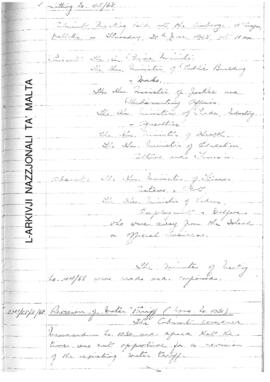 Sitting No. 25/68.
Cabinet Meeting held at the Auberge d'Aragon
Valletta on Thursday, 20th June 1968, at 10 am
Present: The Hon. Prime Minister
The Hon. Minister of Public Building
& Works.
The Hon. Minister of Justice and
Parliamentary Affairs.
The Hon. Minister of Trade, Industry
& Agriculture
The Hon. Minister of Health
The Hon. Minister of Education,
Culture and Tourism.
Absent: The Hon. Minister of Finance
Customs & Port
The Hon. Minister of Labour,
Employment & Welfare
who were away from the Island
on official business.
The Minutes of Meeting
No. /68 were read and approved.
Revision of Water Tariff (Memo No. 1030)
The Cabinet considered
Memorandum No. 1030 and agreed that the
time was not opportune for a revision
of the operating water tariff.
L-ARKIVJI NAZZJONALI TA' MALTA